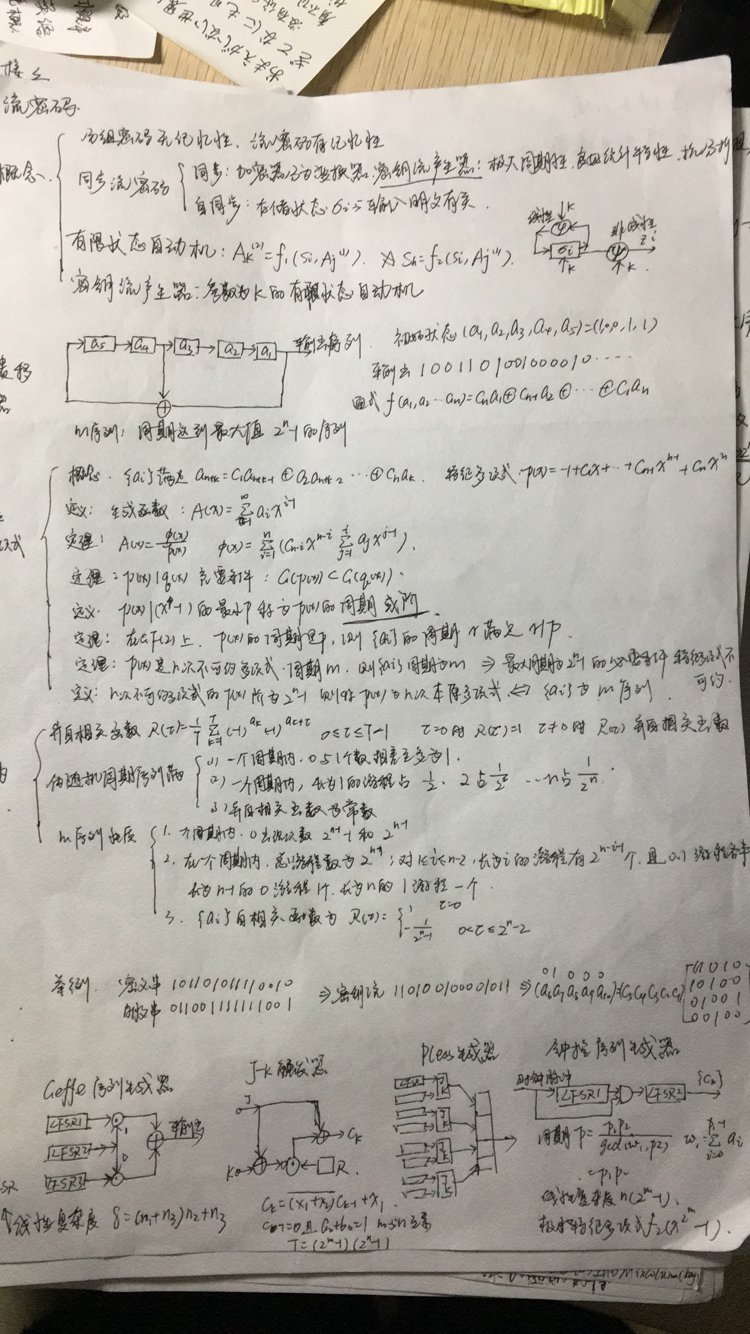 流密码
概念
分组密码无记忆性, 流密码有记忆性
同步流密码
同步: 加密器分为变换器, 密钥流产生器: 极大周期性, 良好统计平衡性, 抗分析
自同步: 存储状态σi与输入明文有关.
线性 非线性
有限状态自动机: Ak⁽²⁾=f₁(Si, Aj⁽¹⁾). Sh=f₂(Si, Aj⁽¹⁾).
密钥流产生器: 参数为K的有限状态自动机
a5 a4 a3 a2 a1 输出序列
初始状态(a1,a2,a3,a4,a5)=(1,0,0,1,1)
输出 1001101001000010....
f(a1,a2…an)=Cna1⊕Cn-1a2⊕…⊕C1an
m序列: 周期达到最大值2ⁿ-1的序列
概念. {ai}满足 an+k=C1an+k-1⊕a2an+k-2…⊕Cnak. 特征多项式 p(x)=1+C1x+…+Cn-1xⁿ⁻¹+Cnxⁿ
定义: 生成函数: A(x)=∑aixⁱ⁻¹
定理: A(x)=φ(x)/p(x) φ(x)=∑(Cn-ixⁿ⁻ⁱ∑ajxʲ⁻¹).
定理: p(x)|q(x) 充要条件: G(p(x))⊂G(q(x)).
定义: p(x)|(xᵖ-1)的最小p称为p(x)的周期或阶
定理: 在GF(2)上, p(x)的周期是p, 则{ai}的周期r满足r|p.
定理: p(x)是n次不可约多项式, 周期m, 则{ai}周期为m ⇒ 最大周期为2ⁿ-1的必要条件特征多项式不可约.
定义: n次不可约多项式的p(x)阶为2ⁿ-1 则称p(x)为n次本原多项式 ⇔ {ai}为m序列.
异自相关函数 R(τ)=1/T∑(-1)^ak(-1)^ak+τ 0≤τ≤T-1 τ=0时 R(τ)=1 τ≠0时 R(τ)异自相关函数
伪随机周期序列满
(1) 一个周期内, 0与1个数相差至多为1.
(2) 一个周期内, 长为1的游程占1/2. 2占1/2² …n占1/2ⁿ.
(3) 异自相关函数为常数
m序列性质
1. 一个周期内, 0 1出现次数 2ⁿ⁻¹-1和2ⁿ⁻¹
2. 在一个周期内, 总游程数为2ⁿ⁻¹; 对1≤i≤n-2, 长为i的游程有2ⁿ⁻ⁱ⁻¹个, 且0.1游程各半
长为n-1的0游程1个, 长为n的1游程一个.
3. {ai}自相关函数为 R(τ)={1 τ=0
-1/(2ⁿ-1) 0<τ≤2ⁿ-2
举例. 密文串 101101011110010
明文串 011001111111001
⇒密钥流 110100100001011 ⇒ (a6a7a8a9a10)=(C5C4C3C2C1)
0 1 0 0 0
1 1 0 1 0
1 0 1 0 0
0 1 0 0 1
0 0 1 0 0
Geffe序列生成器
LFSR1
LFSR2
LFSR3
输出
线性复杂度 δ=(n1+n3)n2+n3
J-K触发器
J
K
R
Ck
Ck=(x1+x2)Ck-1+x1.
T=(2ᵐ-1)(2ⁿ-1)
Pless生成器
LFSR
钟控序列生成器
时钟脉冲 LFSR1 LFSR2 {Ck}
周期p=p1p2/gcd(w1,p2) w1=∑ai
=p1p2
线性复杂度n(2ᵐ-1).
极小特征多项式f2(x^2ᵐ-1).